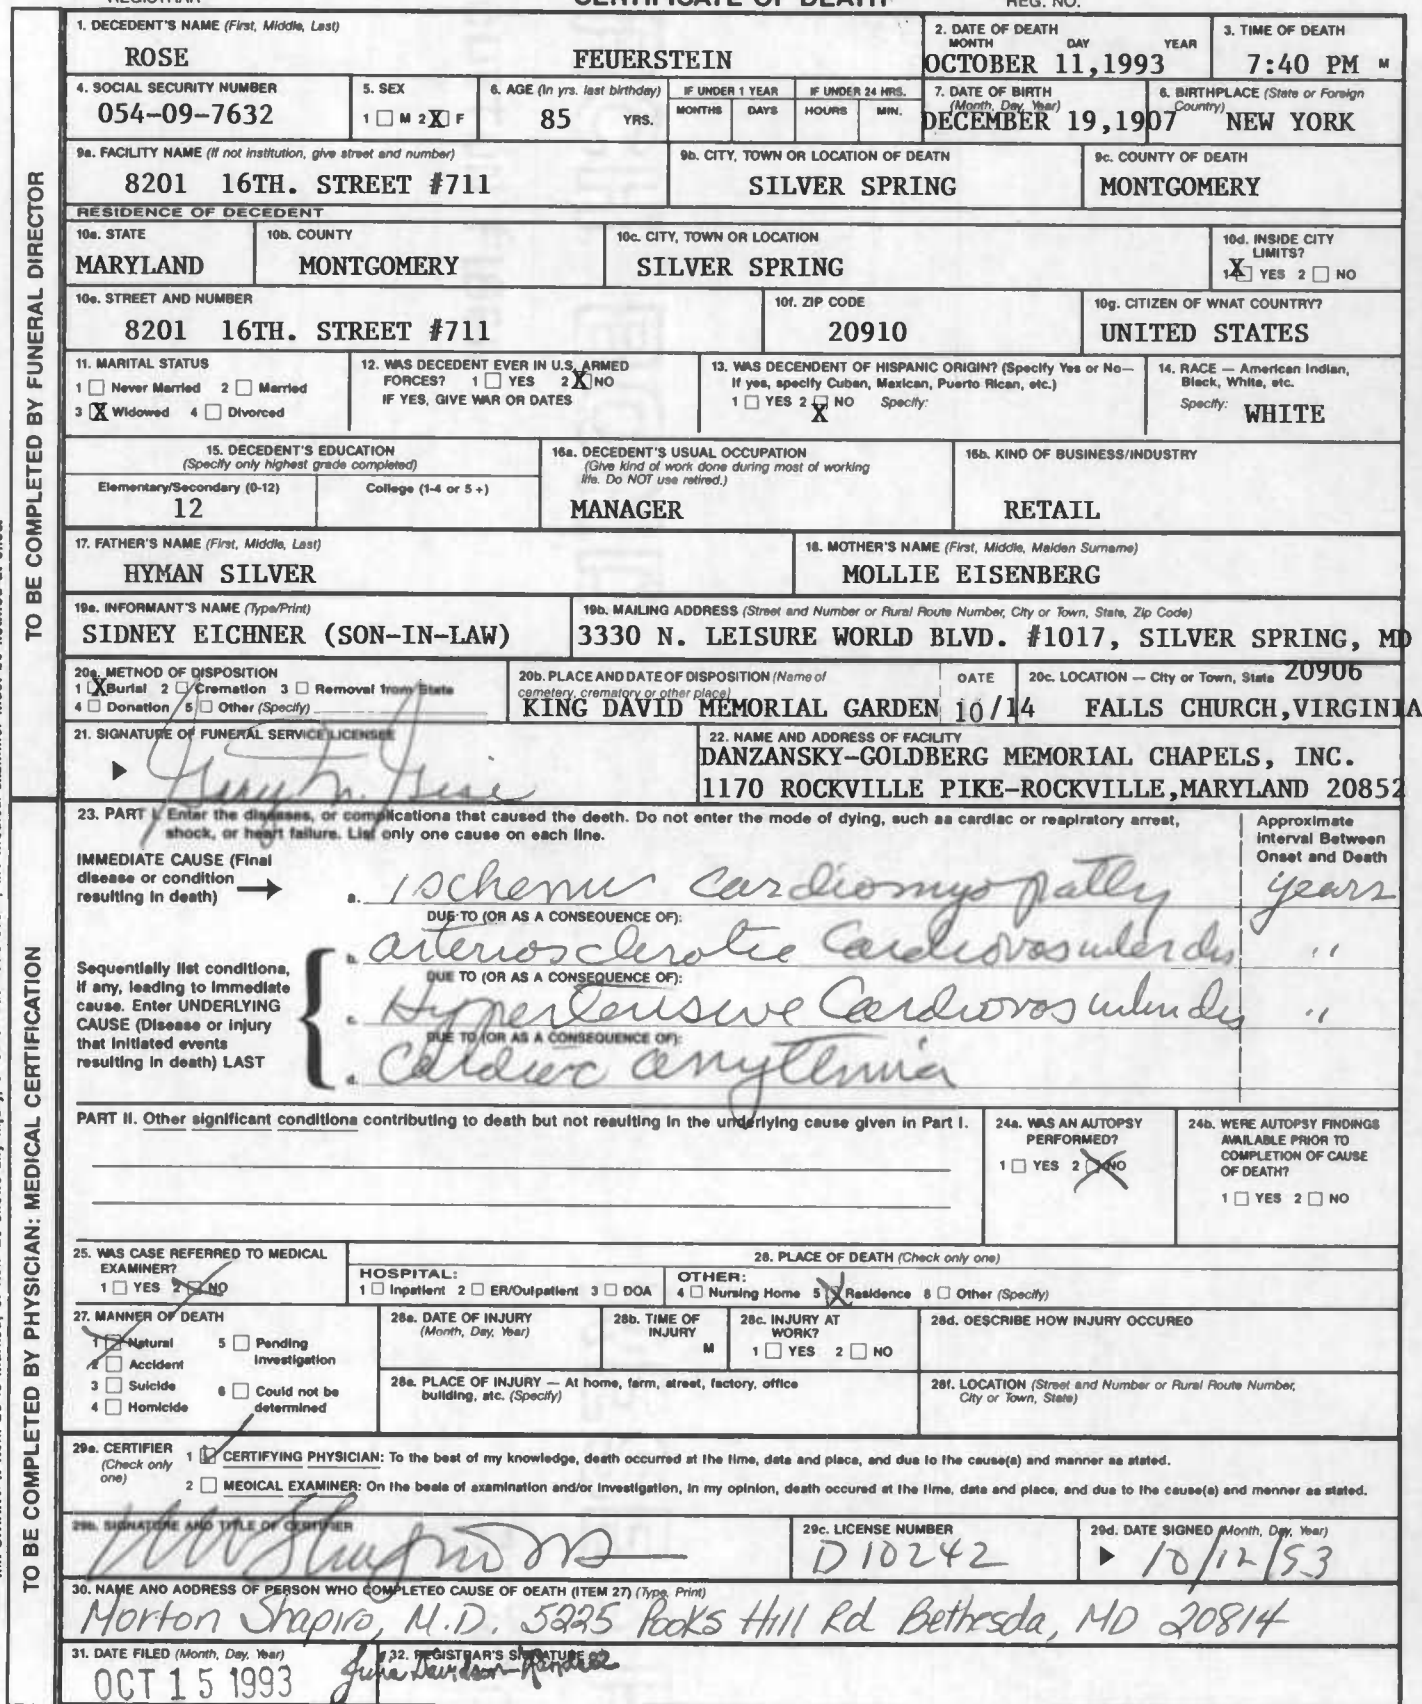 CERTIFICATE OF DEATH
REGISTRAR REG. NO.
1. DECEDENT'S NAME (First, Middle, Last)
ROSE FEUERSTEIN
2. DATE OF DEATH
MONTH DAY YEAR
OCTOBER 11,1993
3. TIME OF DEATH
7:40 PM M
4. SOCIAL SECURITY NUMBER
054-09-7632
5. SEX
1 M 2 X F
6. AGE (In yrs. last birthday)
85 YRS.
IF UNDER 1 YEAR
MONTHS DAYS
IF UNDER 24 HRS.
HOURS MIN.
7. DATE OF BIRTH
(Month, Day, Year)
DECEMBER 19,1907
8. BIRTHPLACE (State or Foreign
Country)
NEW YORK
9a. FACILITY NAME (If not institution, give street and number)
8201 16TH. STREET #711
9b. CITY, TOWN OR LOCATION OF DEATH
SILVER SPRING
9c. COUNTY OF DEATH
MONTGOMERY
RESIDENCE OF DECEDENT
10a. STATE
MARYLAND
10b. COUNTY
MONTGOMERY
10c. CITY, TOWN OR LOCATION
SILVER SPRING
10d. INSIDE CITY
LIMITS?
1 X YES 2 NO
10e. STREET AND NUMBER
8201 16TH. STREET #711
10f. ZIP CODE
20910
10g. CITIZEN OF WHAT COUNTRY?
UNITED STATES
11. MARITAL STATUS
1 Never Married 2 Married
3 X Widowed 4 Divorced
12. WAS DECEDENT EVER IN U.S. ARMED
FORCES? 1 YES 2 X NO
IF YES, GIVE WAR OR DATES
13. WAS DECENDENT OF HISPANIC ORIGIN? (Specify Yes or No—
If yes, specify Cuban, Mexican, Puerto Rican, etc.)
1 YES 2 X NO Specify:
14. RACE — American Indian,
Black, White, etc.
Specify: WHITE
15. DECEDENT'S EDUCATION
(Specify only highest grade completed)
Elementary/Secondary (0-12) College (1-4 or 5+)
12
16a. DECEDENT'S USUAL OCCUPATION
(Give kind of work done during most of working
life. Do NOT use retired.)
MANAGER
16b. KIND OF BUSINESS/INDUSTRY
RETAIL
17. FATHER'S NAME (First, Middle, Last)
HYMAN SILVER
18. MOTHER'S NAME (First, Middle, Maiden Surname)
MOLLIE EISENBERG
19a. INFORMANT'S NAME (Type/Print)
SIDNEY EICHNER (SON-IN-LAW)
19b. MAILING ADDRESS (Street and Number or Rural Route Number, City or Town, State, Zip Code)
3330 N. LEISURE WORLD BLVD. #1017, SILVER SPRING, MD
20906
20a. METHOD OF DISPOSITION
1 X Burial 2 Cremation 3 Removal from State
4 Donation 5 Other (Specify)
20b. PLACE AND DATE OF DISPOSITION (Name of
cemetery, crematory or other place)
KING DAVID MEMORIAL GARDEN
DATE
10/14
20c. LOCATION — City or Town, State
FALLS CHURCH,VIRGINIA
21. SIGNATURE OF FUNERAL SERVICE LICENSEE
22. NAME AND ADDRESS OF FACILITY
DANZANSKY-GOLDBERG MEMORIAL CHAPELS, INC.
1170 ROCKVILLE PIKE-ROCKVILLE,MARYLAND 20852
23. PART I. Enter the diseases, or complications that caused the death. Do not enter the mode of dying, such as cardiac or respiratory arrest,
shock, or heart failure. List only one cause on each line.
Approximate
Interval Between
Onset and Death
IMMEDIATE CAUSE (Final
disease or condition
resulting in death)
a. Ischemic cardiomyopathy years
DUE TO (OR AS A CONSEQUENCE OF):
b. arteriosclerotic Cardiovascular dis "
DUE TO (OR AS A CONSEQUENCE OF):
c. Hypertensive Cardiovascular dis "
DUE TO (OR AS A CONSEQUENCE OF):
d. Cardiac arrythmia
Sequentially list conditions,
if any, leading to immediate
cause. Enter UNDERLYING
CAUSE (Disease or injury
that initiated events
resulting in death) LAST
PART II. Other significant conditions contributing to death but not resulting in the underlying cause given in Part I.
24a. WAS AN AUTOPSY
PERFORMED?
1 YES 2 NO
24b. WERE AUTOPSY FINDINGS
AVAILABLE PRIOR TO
COMPLETION OF CAUSE
OF DEATH?
1 YES 2 NO
25. WAS CASE REFERRED TO MEDICAL
EXAMINER?
1 YES 2 NO
26. PLACE OF DEATH (Check only one)
HOSPITAL:
1 Inpatient 2 ER/Outpatient 3 DOA
OTHER:
4 Nursing Home 5 Residence 6 Other (Specify)
27. MANNER OF DEATH
1 Natural 5 Pending
Investigation
2 Accident
3 Suicide 6 Could not be
determined
4 Homicide
28a. DATE OF INJURY
(Month, Day, Year)
28b. TIME OF
INJURY
M
28c. INJURY AT
WORK?
1 YES 2 NO
28d. DESCRIBE HOW INJURY OCCURED
28e. PLACE OF INJURY — At home, farm, street, factory, office
building, etc. (Specify)
28f. LOCATION (Street and Number or Rural Route Number,
City or Town, State)
29a. CERTIFIER
(Check only
one)
1 CERTIFYING PHYSICIAN: To the best of my knowledge, death occurred at the time, date and place, and due to the cause(s) and manner as stated.
2 MEDICAL EXAMINER: On the basis of examination and/or investigation, in my opinion, death occured at the time, date and place, and due to the cause(s) and manner as stated.
29b. SIGNATURE AND TITLE OF CERTIFIER
29c. LICENSE NUMBER
D10242
29d. DATE SIGNED (Month, Day, Year)
10/12/93
30. NAME AND ADDRESS OF PERSON WHO COMPLETED CAUSE OF DEATH (ITEM 27) (Type, Print)
Morton Shapiro, M.D. 5225 Pooks Hill Rd Bethesda, MD 20814
31. DATE FILED (Month, Day, Year)
OCT 15 1993
32. REGISTRAR'S SIGNATURE
TO BE COMPLETED BY FUNERAL DIRECTOR
TO BE COMPLETED BY PHYSICIAN: MEDICAL CERTIFICATION